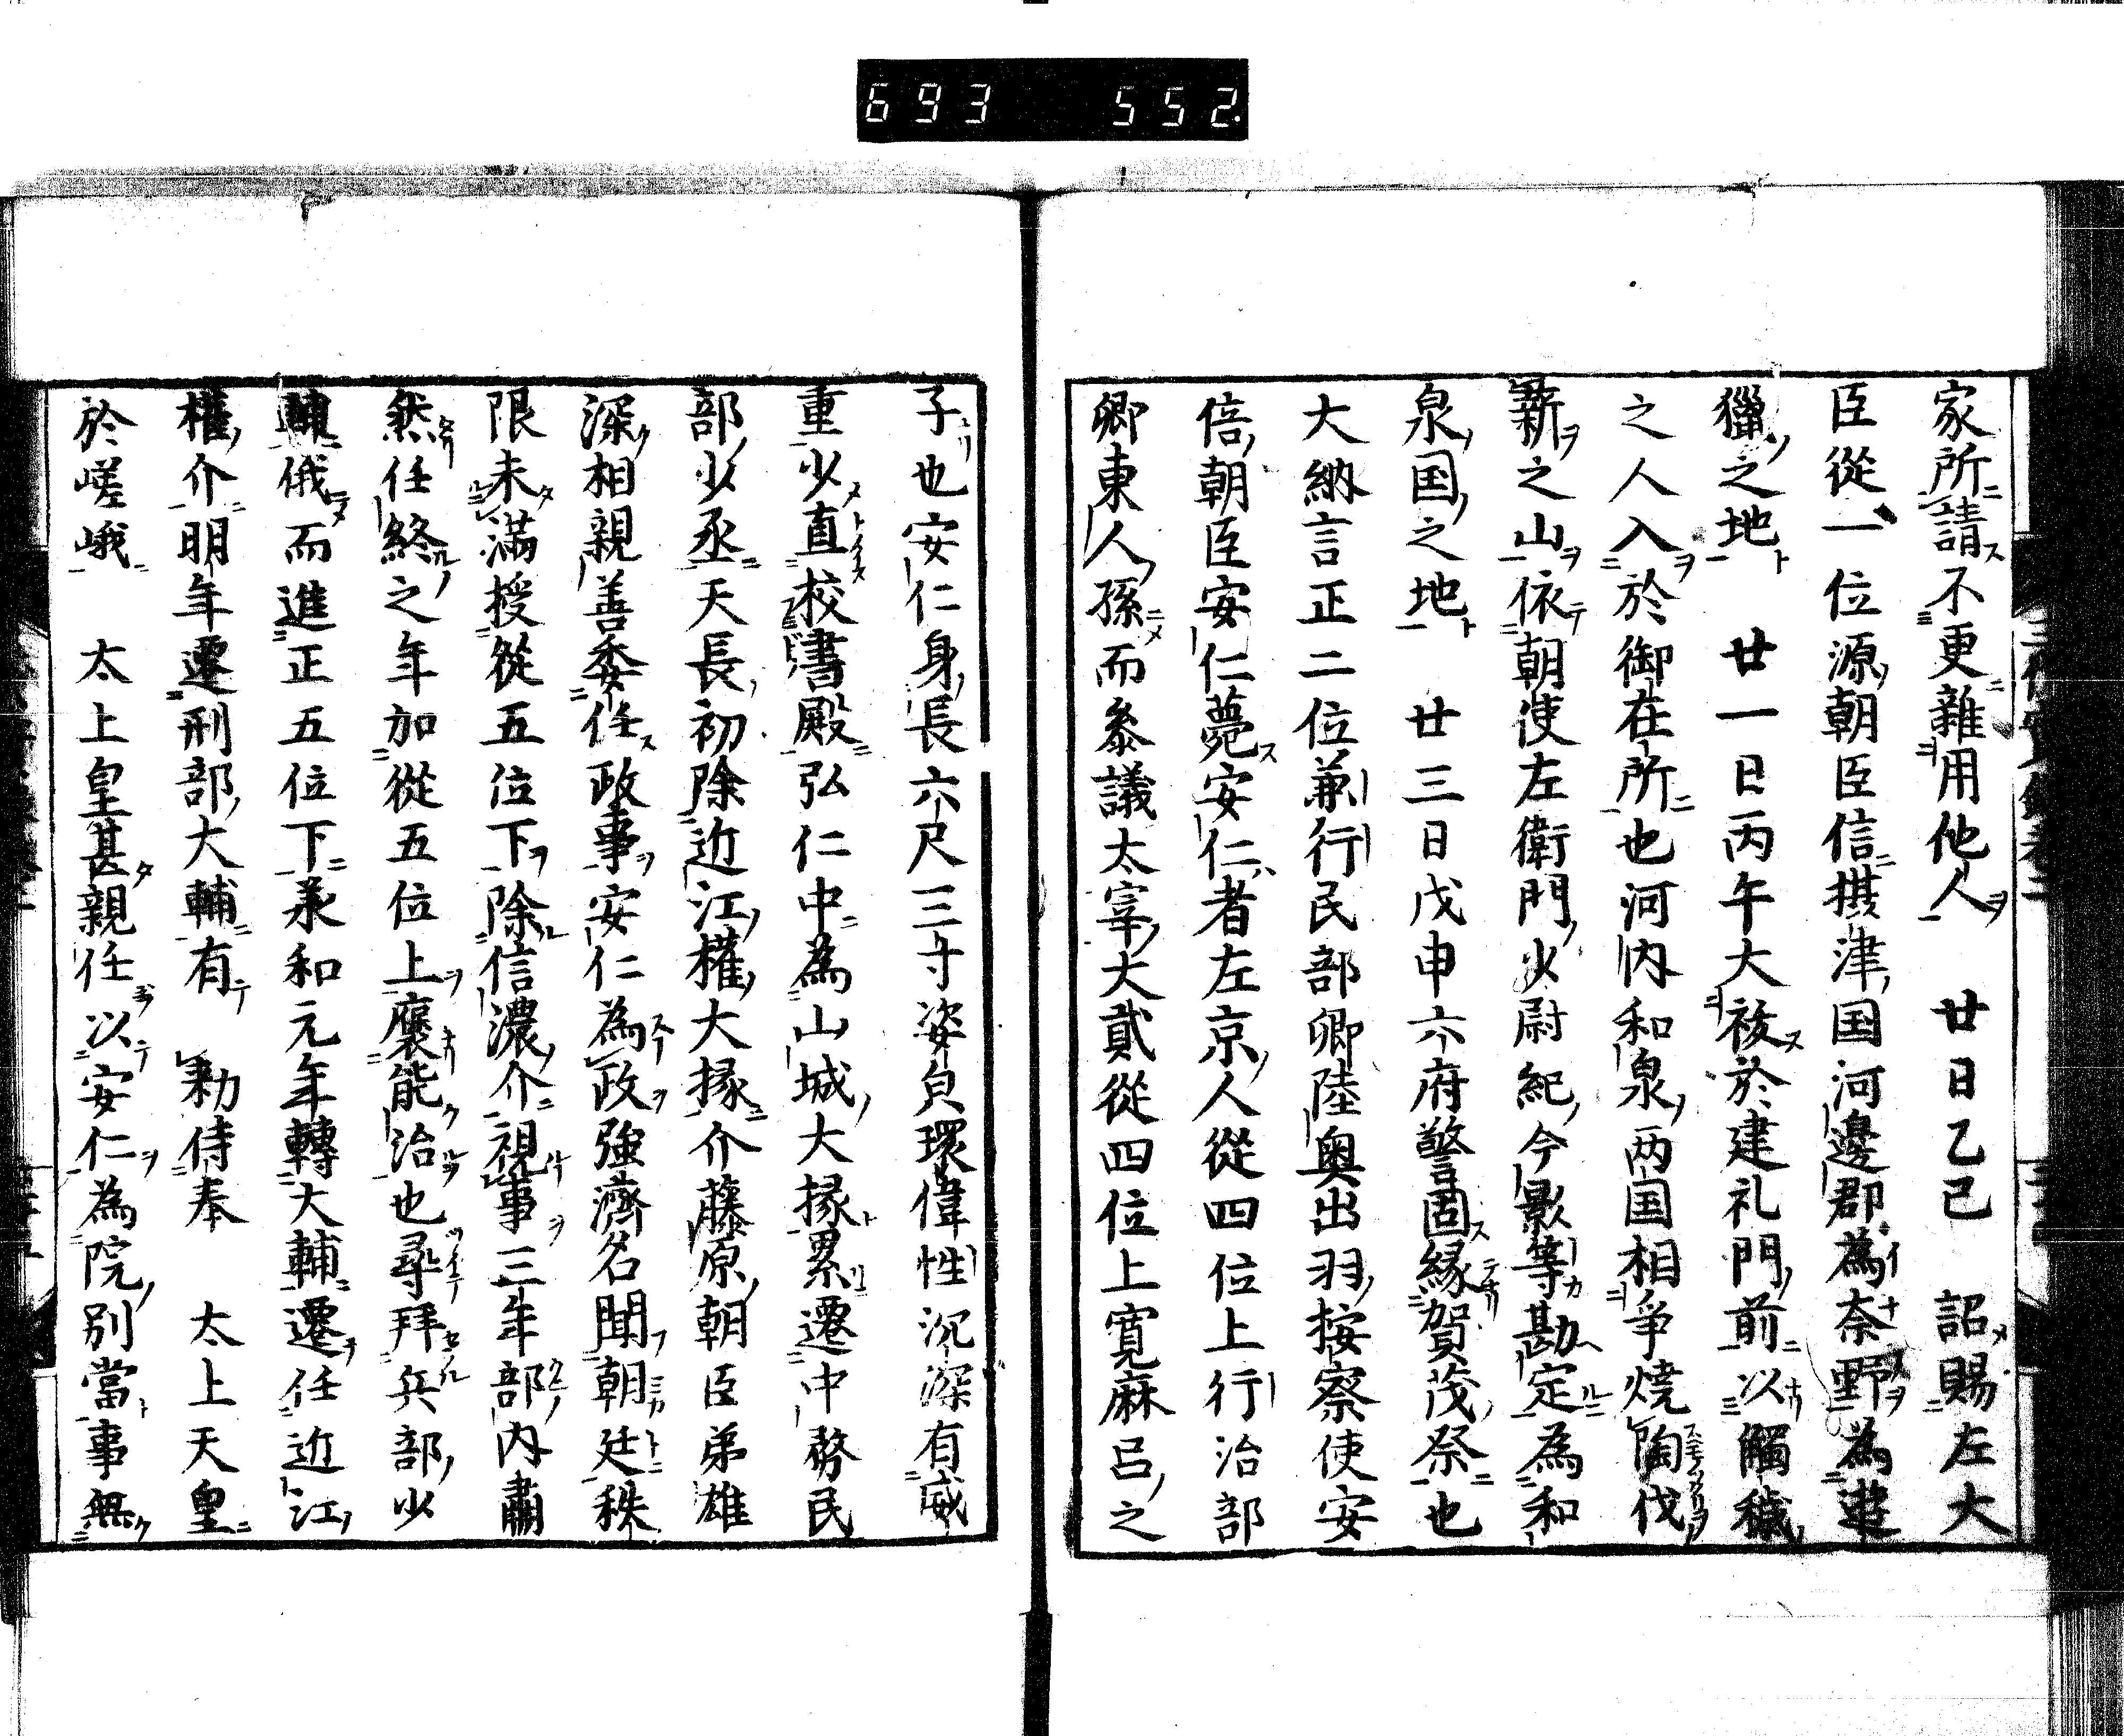 693 552
家所請不更雜用他人　廿日乙巳　詔賜左大
臣從一位源朝臣信摂津国河邊郡為奈野為遊
獵之地　廿一日丙午大祓於建礼門前以觸穢
之人入於御在所也河内和泉两国相爭燒陶伐
薪之山依朝使左衛門少尉紀今影等勘定為和
泉国之地　廿三日戊申六府警固緣賀茂祭也
大納言正二位兼行民部卿陸奥出羽按察使安
倍朝臣安仁薨安仁者左京人從四位上行治部
卿東人孫而叅議太宰大貳從四位上寛麻呂之
子也安仁身長六尺三寸姿皃環偉性沉深有威
重少直校書殿弘仁中為山城大掾累遷中務民
部少丞天長初除近江權大掾介藤原朝臣弟雄
深相親善委任政事安仁為政強濟名聞朝廷秩
限未滿授從五位下除信濃介視事三年部内肅
然任終之年加從五位上褒能治也尋拜兵部少
輔俄而進正五位下承和元年轉大輔遷任近江
權介明年遷刑部大輔有　勅侍奉　太上天皇
於嵯峨　太上皇甚親任以安仁為院別當事無